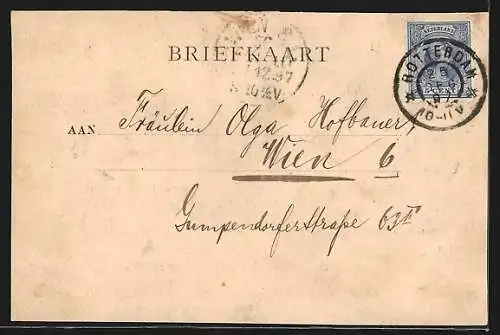 WIEN
12.97
10½V
BRIEFKAART
NEDERLAND
ROTTERDAM
10-11V
AAN Fräulein Olga Hofbauer,
Wien 6
Gumpendorferstraße 63